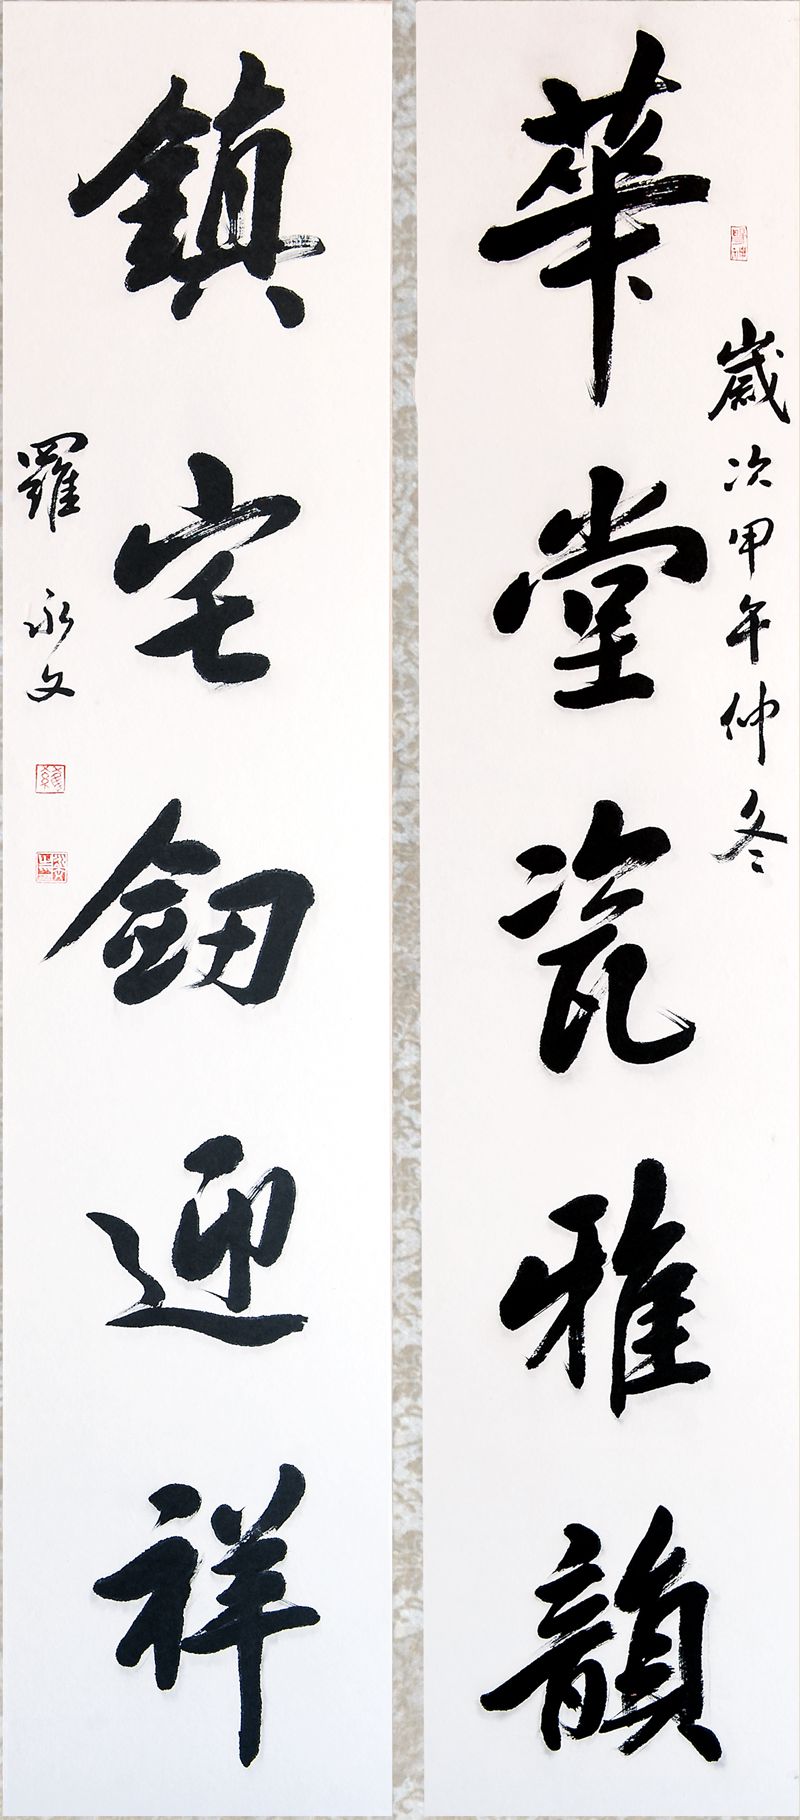 歲次甲午仲冬
華堂瓷雅韻
鎮宅劒迎祥
羅永文